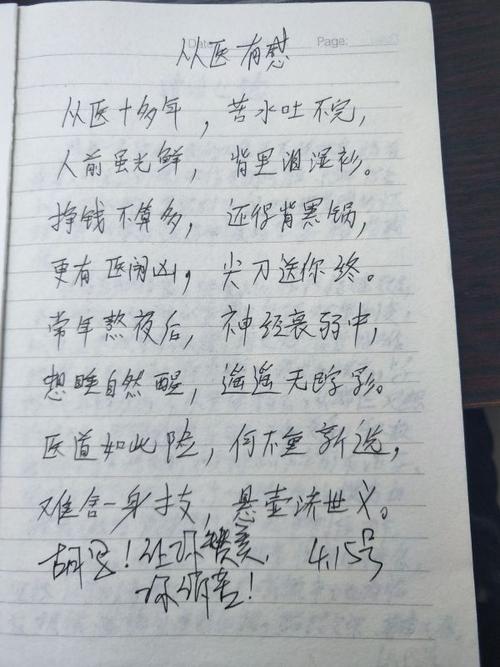 Date
Page:
从医有慰
从医十多年，苦水吐不完，
人前虽光鲜，背里泪湿衫。
挣钱不算多，还得背黑锅，
更有医闹凶，尖刀送你终。
常年熬夜后，神经衰弱中，
想睡自然醒，遥遥无踪影。
医道如此险，何不重新选，
难舍一身技，悬壶济世义。
！让你 4.15号
你 ！